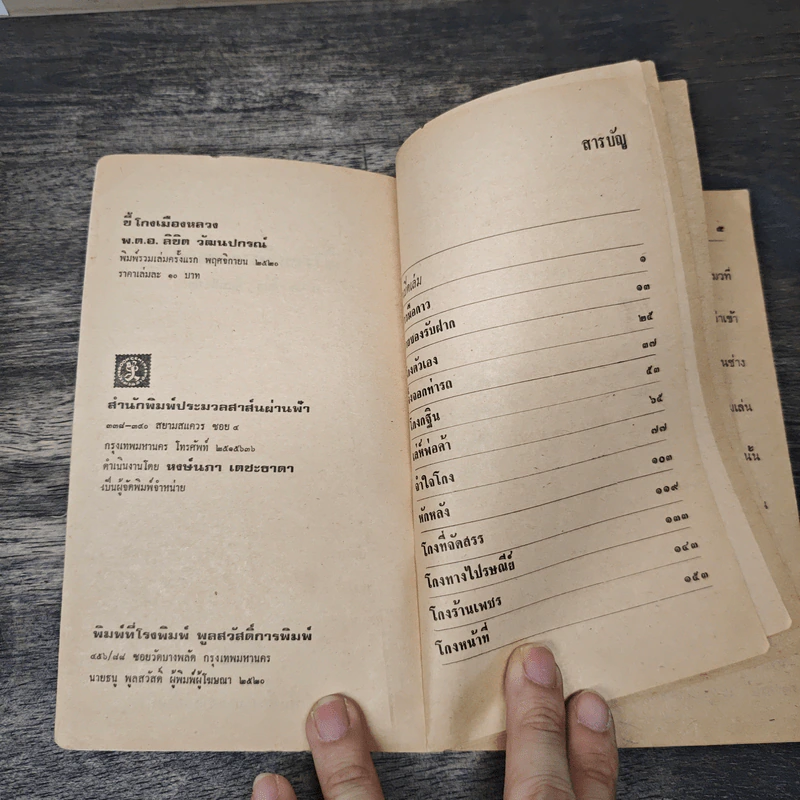 ขี้โกงเมืองหลวง
พ.ต.อ. ลิขิต วัฒนปกรณ์
พิมพ์รวมเล่มครั้งแรก พฤศจิกายน ๒๕๒๐
ราคาเล่มละ ๑๐ บาท
สำนักพิมพ์ประมวลสาส์นผ่านฟ้า
๓๓๘-๓๔๐ สยามสแควร ซอย ๔
กรุงเทพมหานคร โทรศัพท์ ๒๕๑๕๖๓๖
ดำเนินงานโดย หงษ์นภา เตชะธาดา
เป็นผู้จัดพิมพ์จำหน่าย
พิมพ์ที่โรงพิมพ์ พูลสวัสดิ์การพิมพ์
๔๕๖/๘๘ ซอยวัดบางพลัด กรุงเทพมหานคร
นายธนู พูลสวัสดิ์ ผู้พิมพ์ผู้โฆษณา ๒๕๒๐
สารบัญ
๑
ของรับฝาก ๑๓
ตัวเอง ๒๕
จอกท่ารถ ๓๗
โกงกฐิน ๕๓
เล่ห์พ่อค้า ๖๕
จำใจโกง ๗๗
หักหลัง ๑๐๓
โกงที่จัดสรร ๑๑๙
โกงทางไปรษณีย์ ๑๓๓
โกงร้านเพชร ๑๔๓
โกงหน้าที่ ๑๕๓
๕
นั้น